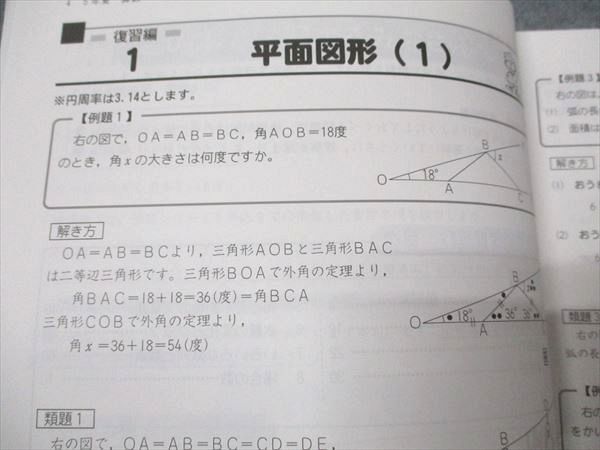 復習編
1 平面図形(1)
※円周率は3.14とします。
【例題1】
右の図で，OA＝AB＝BC，角AOB＝18度
のとき，角xの大きさは何度ですか。
O 18° A B x C
解き方
OA＝AB＝BCより，三角形AOBと三角形BAC
は二等辺三角形です。三角形BOAで外角の定理より，
角BAC＝18＋18＝36(度)＝角BCA
三角形COBで外角の定理より，
角x＝36＋18＝54(度)
O 18° A 36° 36° B
類題1
右の図で，OA＝AB＝BC＝CD＝DE，
B
【例題3】
右の図は，
(1) 弧の長
(2) 面積は
解き方
(1) おうぎ
6
(2) おうぎ
6
類題3
右の図
弧の長
【例
右の
をかい